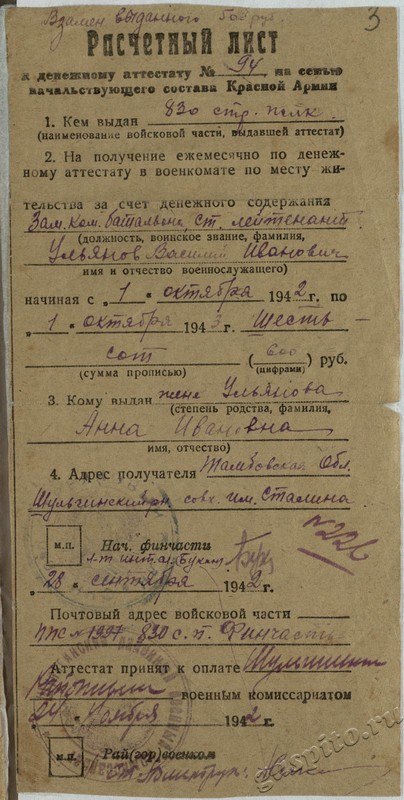 Взамен выданного
3
Расчетный лист
к денежному аттестату № 94 на семью
начальствующего состава Красной Армии
1. Кем выдан 830 стр. полк.
(наименование войсковой части, выдавшей аттестат)
2. На получение ежемесячно по денеж-
ному аттестату в военкомате по месту жи-
тельства за счет денежного содержания
Зам. ком. батальона, ст. лейтенант
(должность, воинское звание, фамилия,
Ульянов Василий Иванович
имя и отчество военнослужащего)
начиная с „1" октября 1942 г. по
„1" октября 1943 г. Шесть
сот (600) руб.
(сумма прописью) (цифрами)
3. Кому выдан жене Ульянова
(степень родства, фамилия,
Анна Ивановна
имя, отчество)
4. Адрес получателя Тамбовская Обл.
Шульгинский рн совх. им. Сталина
№226
М.П. Нач. финчасти
„28" сентября 1942 г.
Почтовый адрес войсковой части
ППС 830 с.п. Финчасть
Аттестат принят к оплате Шульгинским
военным комиссариатом
„24" ноября 1942 г.
М.П. Рай(гор)военком
gaspito.ru